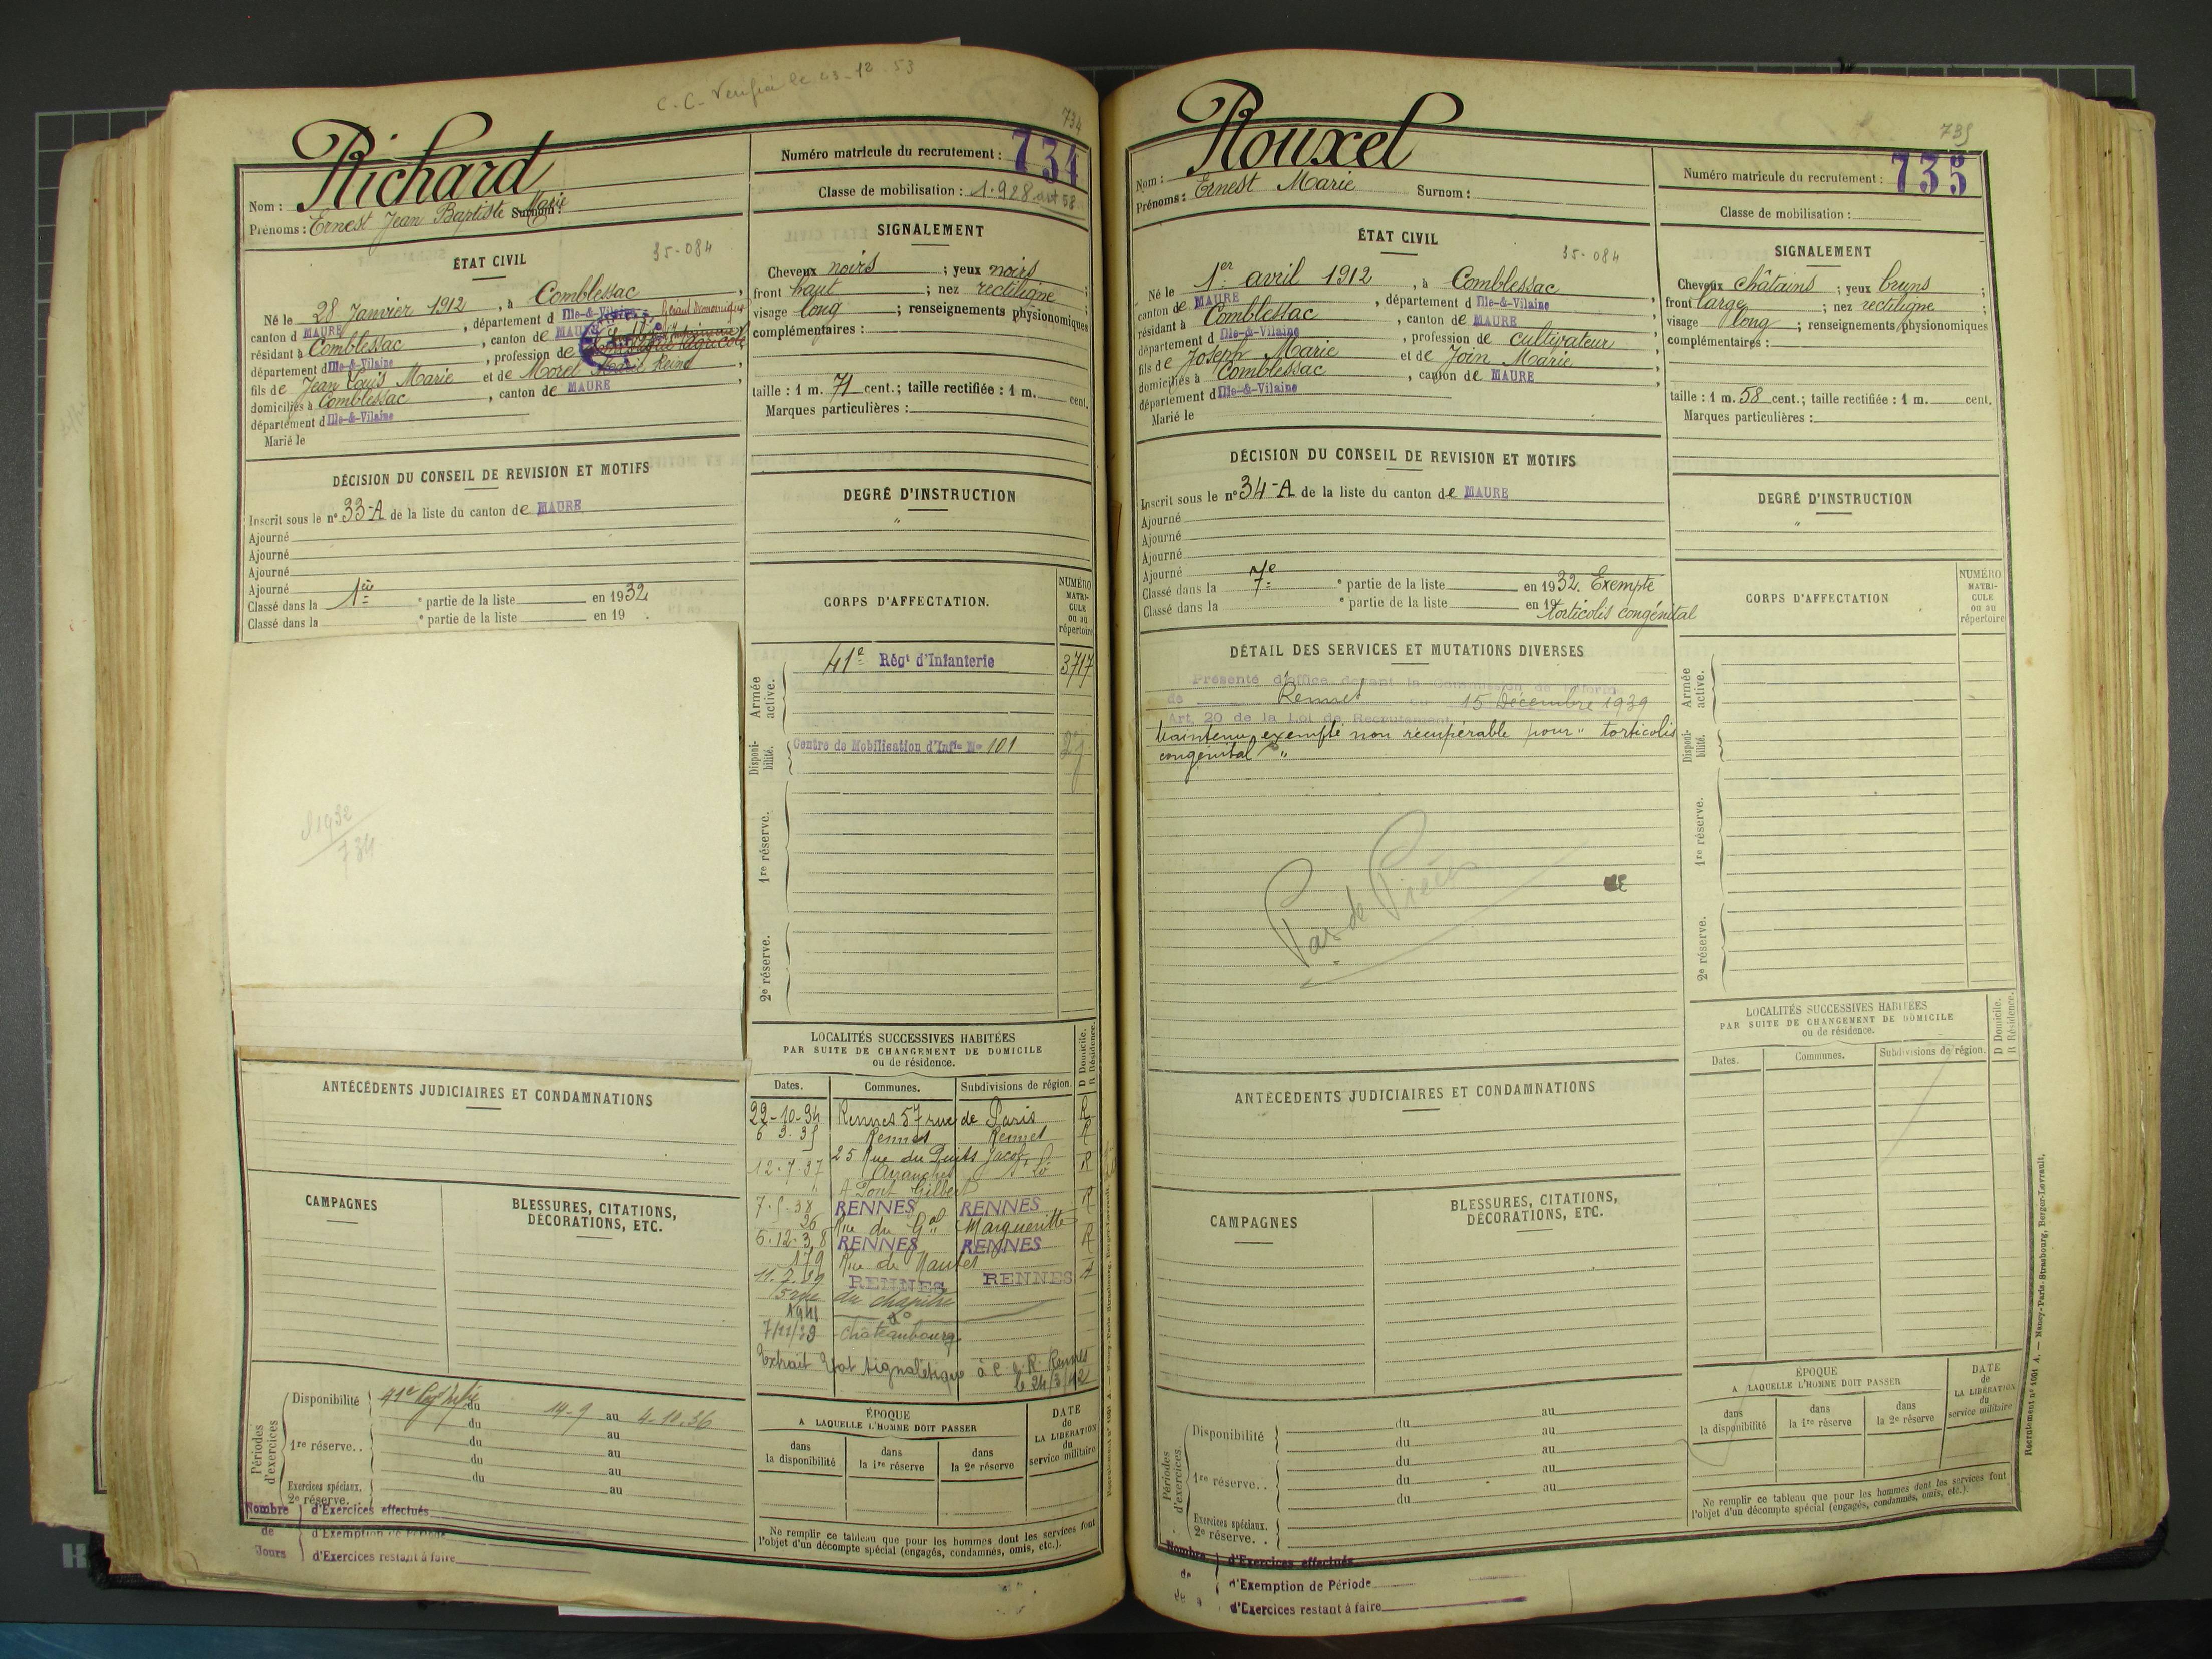 C.C. Vérifié le 23-12-53
734
Richard
Nom :
Prénoms : Ernest Jean Baptiste Marie Surnom :
Numéro matricule du recrutement : 734
Classe de mobilisation : 1.928
ÉTAT CIVIL
35-084
Né le 28 Janvier 1912, à Comblessac,
canton d MAURE, département d Ille-&-Vilaine,
résidant à Comblessac, canton de MAURE
département d Ille-&-Vilaine, profession de
fils de Jean Louis Marie et de Morel
domiciliés à Comblessac, canton de MAURE,
département d Ille-&-Vilaine
Marié le
SIGNALEMENT
Cheveux noirs ; yeux noirs ;
front haut ; nez rectiligne ;
visage long ; renseignements physionomiques
complémentaires :
taille : 1 m. 71 cent.; taille rectifiée : 1 m. cent.
Marques particulières :
DÉCISION DU CONSEIL DE REVISION ET MOTIFS
Inscrit sous le n° 33-A de la liste du canton de MAURE
Ajourné
Ajourné
Ajourné
Ajourné
Classé dans la 1ère e partie de la liste en 1932
Classé dans la e partie de la liste en 19 .
DEGRÉ D'INSTRUCTION
"
CORPS D'AFFECTATION.
NUMÉRO
MATRI-
CULE
ou au
répertoire
Armée active.
41e Régt d'Infanterie 3717
Disponi-bilité.
Centre de Mobilisation d'Inf'ie No 101
1re réserve.
2e réserve.
1932
734
LOCALITÉS SUCCESSIVES HABITÉES
PAR SUITE DE CHANGEMENT DE DOMICILE
ou de résidence.
D Domicile.
R Résidence.
Dates. Communes. Subdivisions de région.
22-10-34 Rennes 57 rue de Paris R
6 3.35 Rennes Rennes R
25 Rue du Puits Jacob
12.7.37 Avranches St Lô R
" A Pont Gilbert
7.5.38 RENNES RENNES R
26 Rue du Gal Margueritte
6.12.38 RENNES RENNES R
179 Rue de Nantes
11.7.39 RENNES RENNES
5 rue du chapitre
7/11/39 Châteaubourg
Extrait Etat Signalétique à C. R. Rennes
le 24/3/42
ANTÉCÉDENTS JUDICIAIRES ET CONDAMNATIONS
CAMPAGNES
BLESSURES, CITATIONS,
DÉCORATIONS, ETC.
Périodes d'exercices
Disponibilité 41e Regt Infie du 14-9 au 4-10.36
du au
1re réserve. . du au
du au
du au
Exercices spéciaux.
2e réserve. au
Nombre d'Exercices effectués
de d'Exemption de Période
Jours d'Exercices restant à faire
ÉPOQUE
A LAQUELLE L'HOMME DOIT PASSER
dans la disponibilité
dans la 1re réserve
dans la 2e réserve
DATE
de
LA LIBÉRATION
du
service militaire
Ne remplir ce tableau que pour les hommes dont les services font
l'objet d'un décompte spécial (engagés, condamnés, omis, etc.).
735
Rouxel
Nom :
Prénoms : Ernest Marie Surnom :
Numéro matricule du recrutement : 735
Classe de mobilisation :
ÉTAT CIVIL
35-084
Né le 1er avril 1912, à Comblessac,
canton de MAURE, département d Ille-&-Vilaine,
résidant à Comblessac, canton de MAURE
département d Ille-&-Vilaine, profession de cultivateur,
fils de Joseph Marie et de Join Marie,
domiciliés à Comblessac, canton de MAURE,
département d Ille-&-Vilaine
Marié le
SIGNALEMENT
Cheveux châtains ; yeux bruns ;
front large ; nez rectiligne ;
visage long ; renseignements physionomiques
complémentaires :
taille : 1 m. 58 cent.; taille rectifiée : 1 m. cent.
Marques particulières :
DÉCISION DU CONSEIL DE REVISION ET MOTIFS
Inscrit sous le n° 34-A de la liste du canton de MAURE
Ajourné
Ajourné
Ajourné
Ajourné
Classé dans la 7e e partie de la liste en 1932. Exempté
Classé dans la e partie de la liste en 19 torticolis congénital
DEGRÉ D'INSTRUCTION
"
CORPS D'AFFECTATION
NUMÉRO
MATRI-
CULE
ou au
répertoire
Armée active.
Disponi-bilité.
1re réserve.
2e réserve.
DÉTAIL DES SERVICES ET MUTATIONS DIVERSES
Présenté d'office devant la Commission de réform
de Rennes du 15 Décembre 1939
Art. 20 de la Loi de Recrutement
Maintenu exempté non récupérable pour " torticolis
congénital "
Pas de Pièces
LOCALITÉS SUCCESSIVES HABITÉES
PAR SUITE DE CHANGEMENT DE DOMICILE
ou de résidence.
D Domicile.
R Résidence.
Dates. Communes. Subdivisions de région.
ANTÉCÉDENTS JUDICIAIRES ET CONDAMNATIONS
CAMPAGNES
BLESSURES, CITATIONS,
DÉCORATIONS, ETC.
Périodes d'exercices
Disponibilité du au
du au
1re réserve. . du au
du au
du au
Exercices spéciaux.
2e réserve. .
Nombre d'Exercices effectués
de d'Exemption de Période
d'Exercices restant à faire
ÉPOQUE
A LAQUELLE L'HOMME DOIT PASSER
dans la disponibilité
dans la 1re réserve
dans la 2e réserve
DATE
de
LA LIBÉRATION
du
service militaire
Ne remplir ce tableau que pour les hommes dont les services font
l'objet d'un décompte spécial (engagés, condamnés, omis, etc.).
Recrutement n° 1001 A. — Nancy-Paris-Strasbourg, Berger-Levrault.